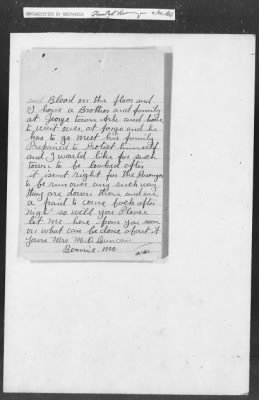 DECLASSIFIED BY AUTHORITY
and Blood on the floor and
I have a Brother and family
at George town Ark and have
to wait over at fargo and he
has to go meet his family
Prepared to Protect himself
and I would like for such
town to be looked after
it isent right for the
to be run over any such way
they are down there and are
a fraid to come back after
night so will you Please
let me here from you soon
on what can be done about it
Yours Mrs. M. O. Duncan
Mo